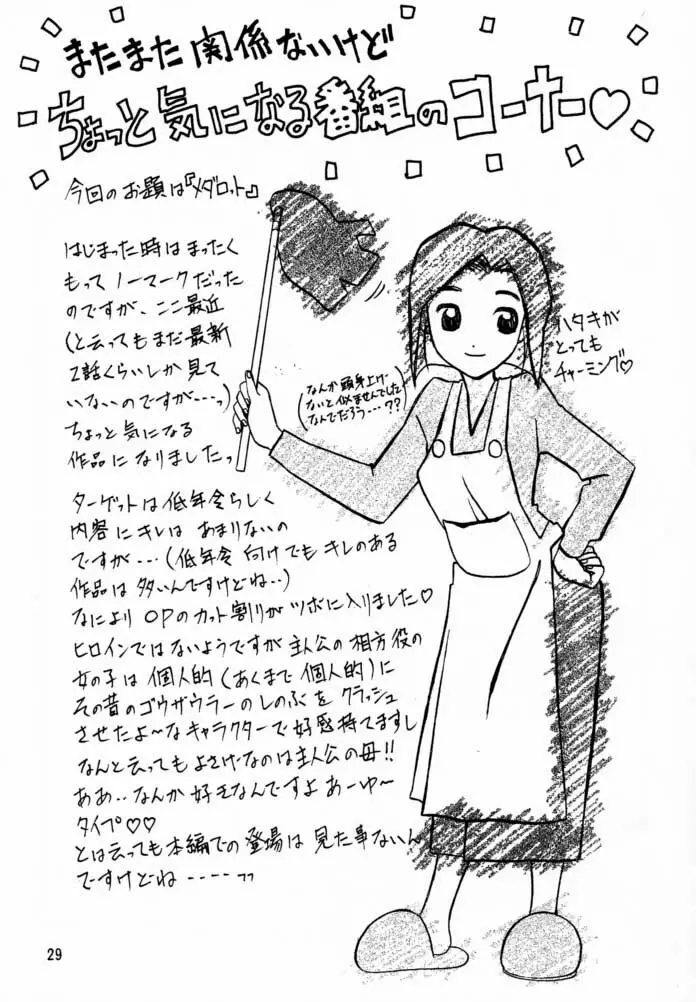 またまた関係ないけど
ちょっと気になる番組のコーナー♡
今回のお題は『メダロット』
はじまった時はまったく
もってノーマークだった
のですが、ここ最近
(と云ってもまだ最新
2話くらいしか見て
いないのですが…っ)
ちょっと気になる
作品になりましたっ
ハタキが
とっても
チャーミング♡
(なんか頭身上げ
ないと似ませんでした
なんでだろう…??)
ターゲットは低年令らしく
内容にキレはあまりないの
ですが…(低年令向けでもキレのある
作品は多いんですけどね..)
なによりOPのカット割りがツボに入りました♡
ヒロインではないようですが主人公の相方役の
女の子は個人的(あくまで個人的)に
その昔のゴウザウラーのしのぶをクラッシュ
させたよ〜なキャラクターで好感持てますし
なんと云ってもよさげなのは主人公の母!!
ああ..なんか好きなんですよあーゆ〜
タイプ♡♡
とは云っても本編での登場は見た事ないん
ですけどね----っっ
29